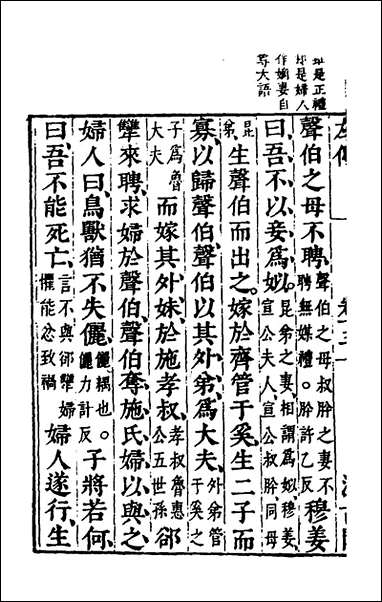 是正禮
是婦人
作嫡妻自
尊大語
左傳
聲伯之母不聘、聲伯之母叔肸之妻不聘無媒禮。肸許乙反穆姜
曰、吾不以妾為姒。昆弟之妻、相謂為姒、穆姜宣公夫人、宣公叔肸同母
昆弟生聲伯而出之。嫁於齊管于奚、生二子而
寡、以歸聲伯、聲伯以其外弟、為大夫、外弟管于奚之
子為魯大夫而嫁其外妹、於施孝叔、孝叔魯惠公五世孫郤
犫來聘、求婦於聲伯、聲伯奪施氏婦以與之
婦人曰、鳥獸猶不失儷、儷耦也。儷力計反子將若何、
曰、吾不能死亡、言不與郤犫婦懼能忿致禍婦人遂行、生